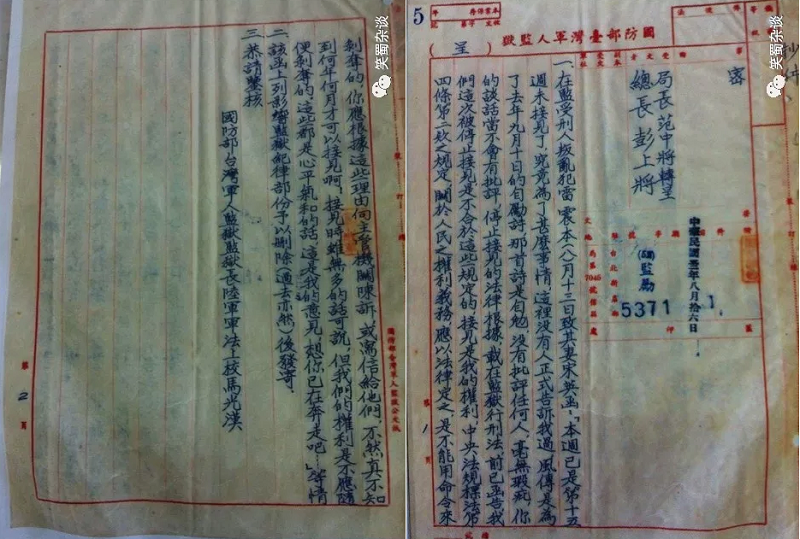 國防部臺灣軍人監獄
（呈）
5
密
局長 范中將轉呈
總長 彭上將
年八月拾六日
監
5371
一、在監受刑人叛亂犯雷震本（八）月十三日致其妻宋英函：「本週已是第十五
週未接見了，究竟為了甚麼事情，這裡沒有人正式告訴我過，風傳是為
了去年九月十日的自勵詩，那首詩是自勉，沒有批評任何人，毫無瑕疵，你
的談話當不會有批評，停止接見的法律根據，載在監獄行刑法，前已函告，我
們這次被停止接見是不合於這些規定的，接見是我的權利，中央法規標準法第
四條第二款之規定，關於人民之權利義務，應以法律定之，是不能用命令來
第1頁
剝奪的，你應根據這些理由向主管機關陳訴，或寫信給他們，不然真不知
到何年何月才可以接見啊，接見時雖無多的話可說，但我們的權利是不應隨
便剝奪的，這些都是心平氣和的話，這是我的意見，想你已在奔走吧……」等情
二、該函上列影響監獄紀律部份予以刪除（過去亦然）後發寄。
三、恭請鑒核
國防部台灣軍人監獄監獄長陸軍軍法上校馬光漢
國防部臺灣軍人監獄公文紙
第2頁
笑蜀杂谈
笑蜀杂谈